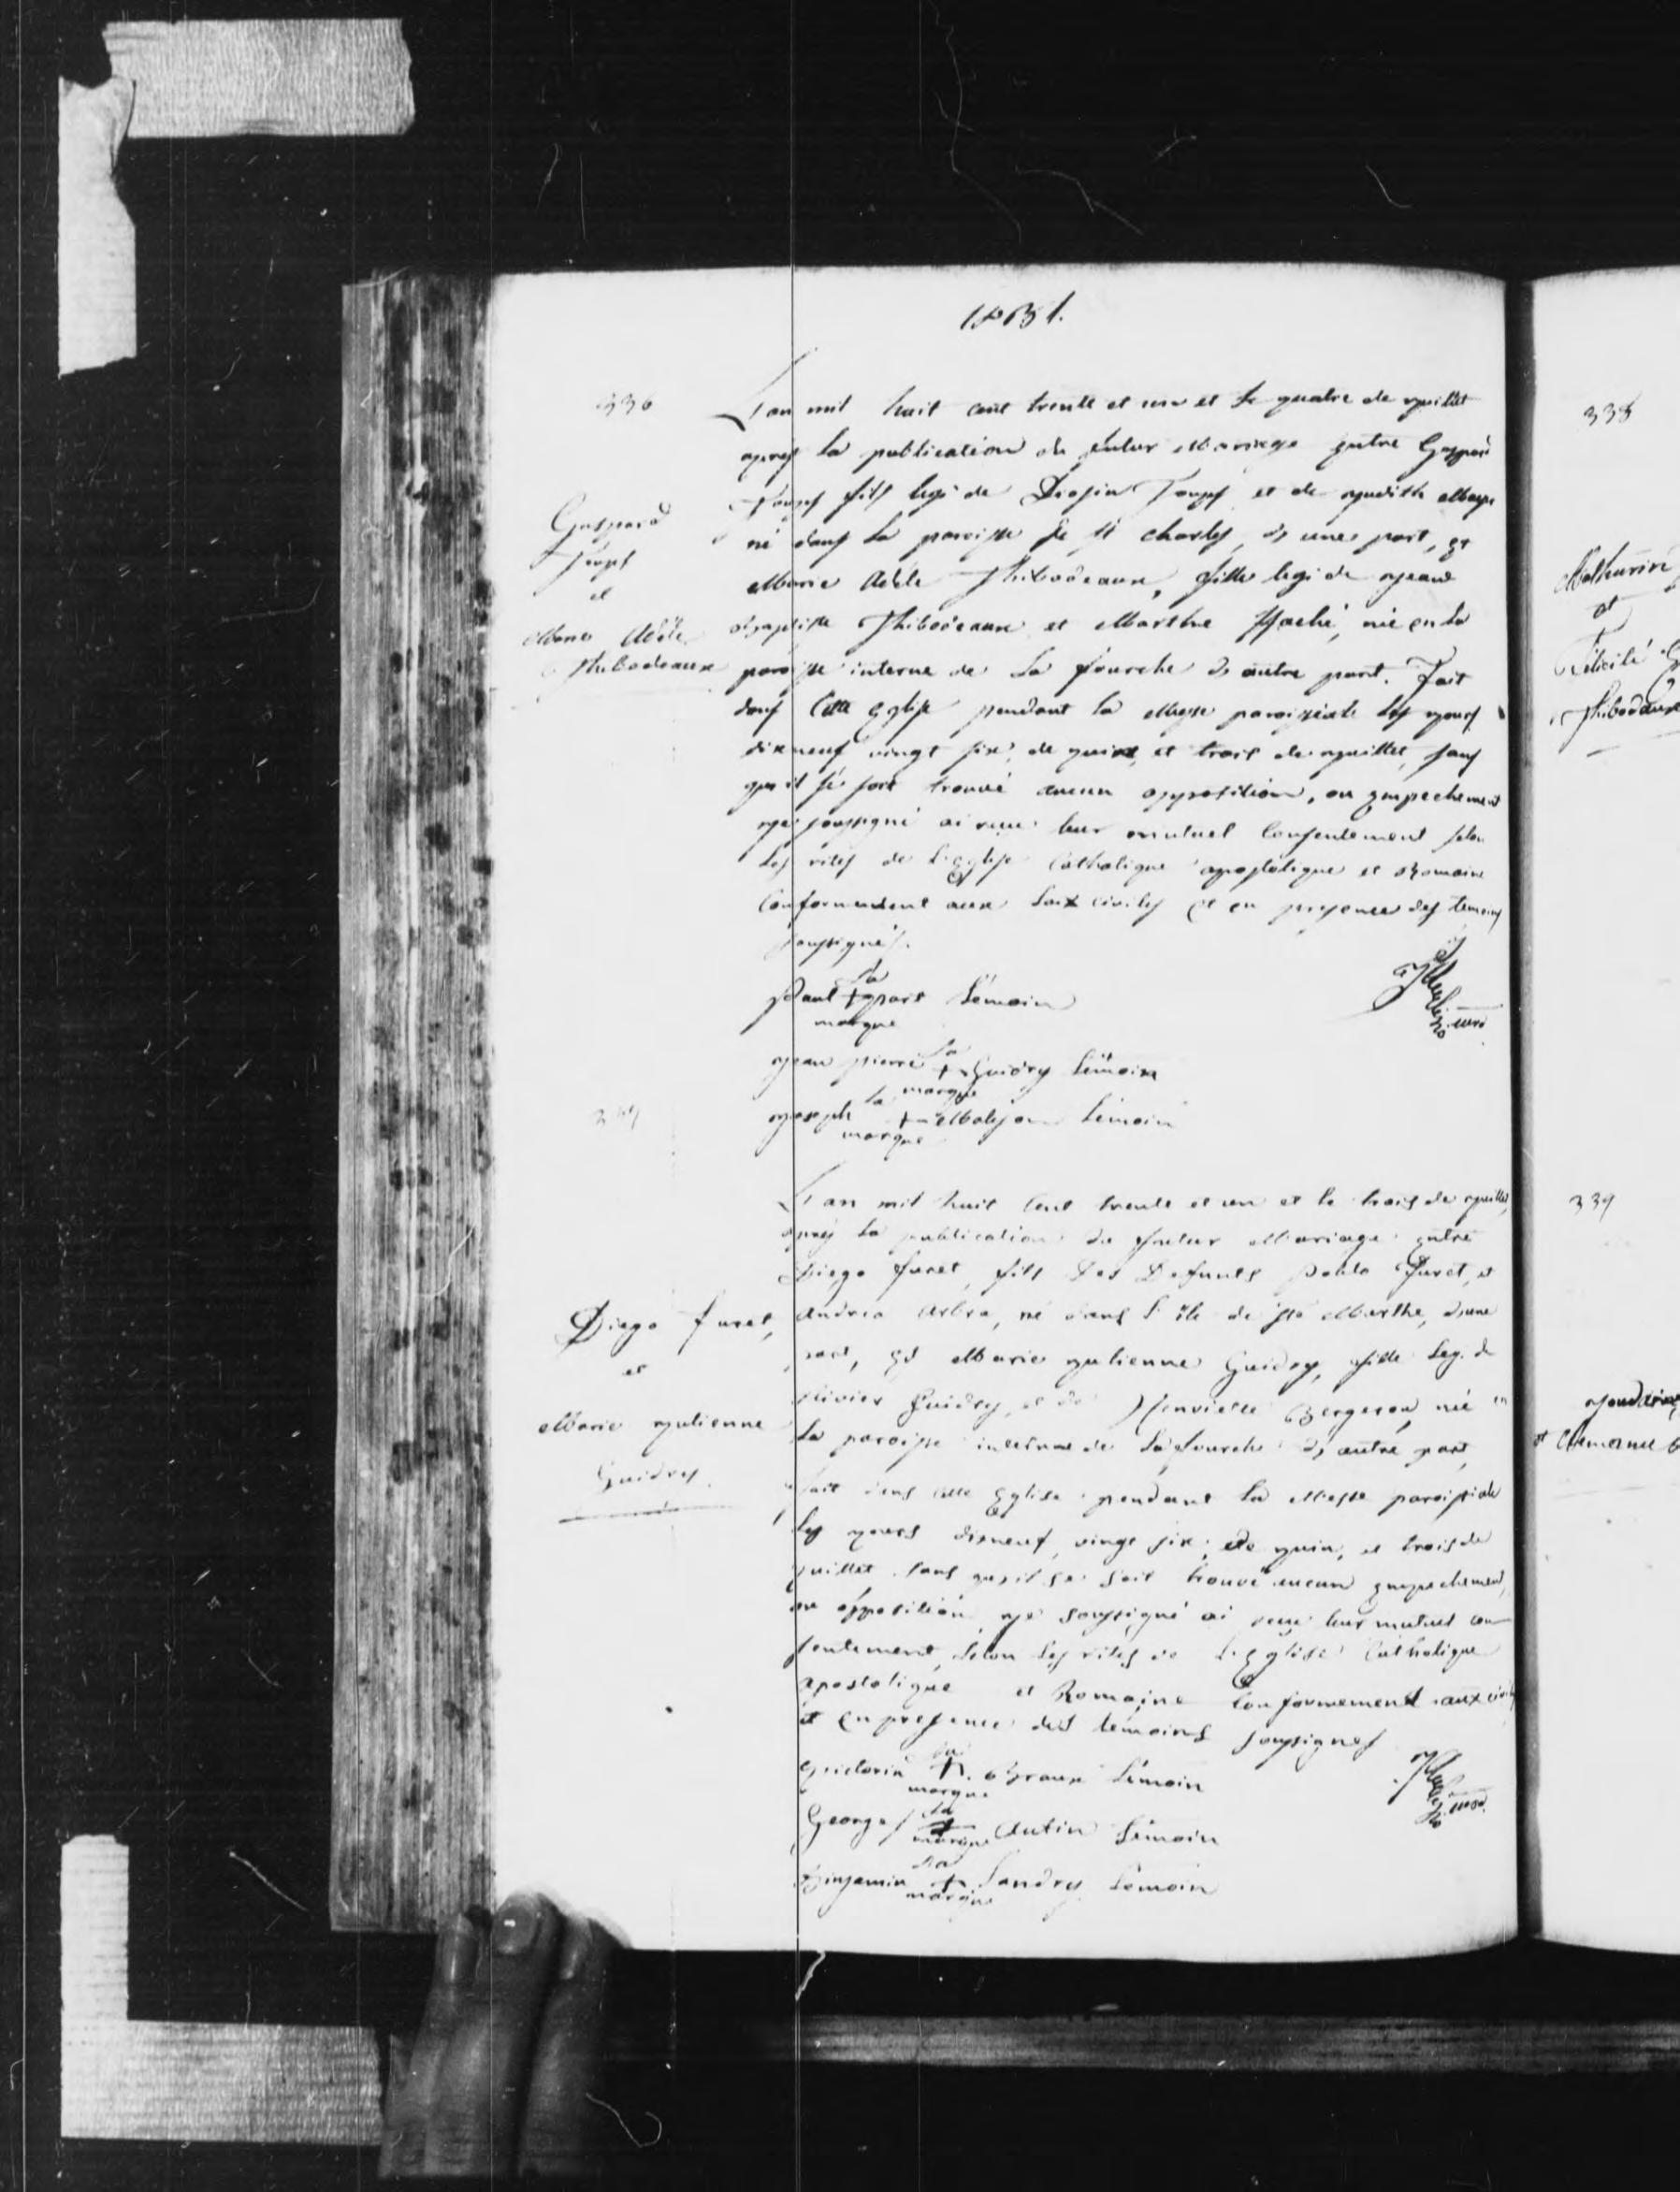 1831.
336
L'an mil huit cent trente et un et le quatre de juillet
après la publication du futur Mariage entre Gaspard
Toups fils legi de Drosin Toups et de Judith Mayer
né dans la paroisse de St Charles, d'une part, et
Marie Adèle Thibodeaux, fille legi de Jean
Baptiste Thibodeaux et Marthe Haché, née en la
paroisse interne de La fourche d'autre part. Fait
dans Cette Eglise pendant la Messe paroissiale les jours
dixneuf vingt six, de juin, et trois de juillet, sans
qu'il se soit trouvé aucun opposition, ou empechement
je soussigné ai reçu leur mutuel Consentement selon
les rites de L'Eglise Catholique apostolique et Romaine
Conformement aux Loix civiles et en presence des temoins
soussignés.
Gaspard
Toups
et
Marie Adèle
Thibodeaux
sa
Paul + part témoin
marque
sa
Jean pierre + Guidry témoin
marque
sa
Joseph + témoin
marque
curé
L'an mil huit Cent trente et un et le trois de juillet,
après la publication du futur Mariage entre
Diego Furet, fils des Defunts Pablo Furet, et
Andrea Arbra, né dans l'île de Ste Marthe, d'une
part, et Marie Julienne Guidry, fille Leg. de
Olivier Guidry, et de Henriette Bergeron, née en
la paroisse interne de Lafourche d'autre part,
fait dans cette Eglise pendant la Messe paroissiale
les jours dixneuf, vingt six, de juin, et trois de
juillet sans qu'il se soit trouvé aucun empechement,
ou opposition je soussigné ai reçu leur mutuel con
sentement, selon les rites de L'Eglise Catholique
apostolique et Romaine Conformement aux civiles
et en presence des témoins soussignes
Diego Furet,
et
Marie Julienne
Guidry.
sa
Victorin +. Braux témoin
marque
sa
George + Autin témoin
marque
sa
Binjamin + Landry témoin
marque
curé
338
Mathurin
et
Félicité
Thibodaux
339
et Clemence